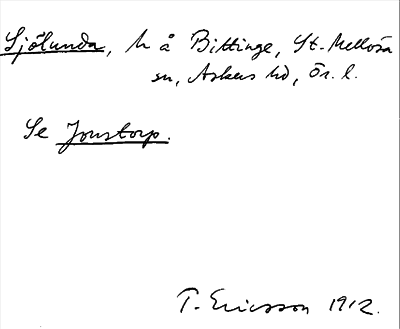 Sjölunda, h å Bittinge, St. Mellösa
sn, Askers hd, Ör. l.
Se Jonstorp.
T. Ericsson 1912.